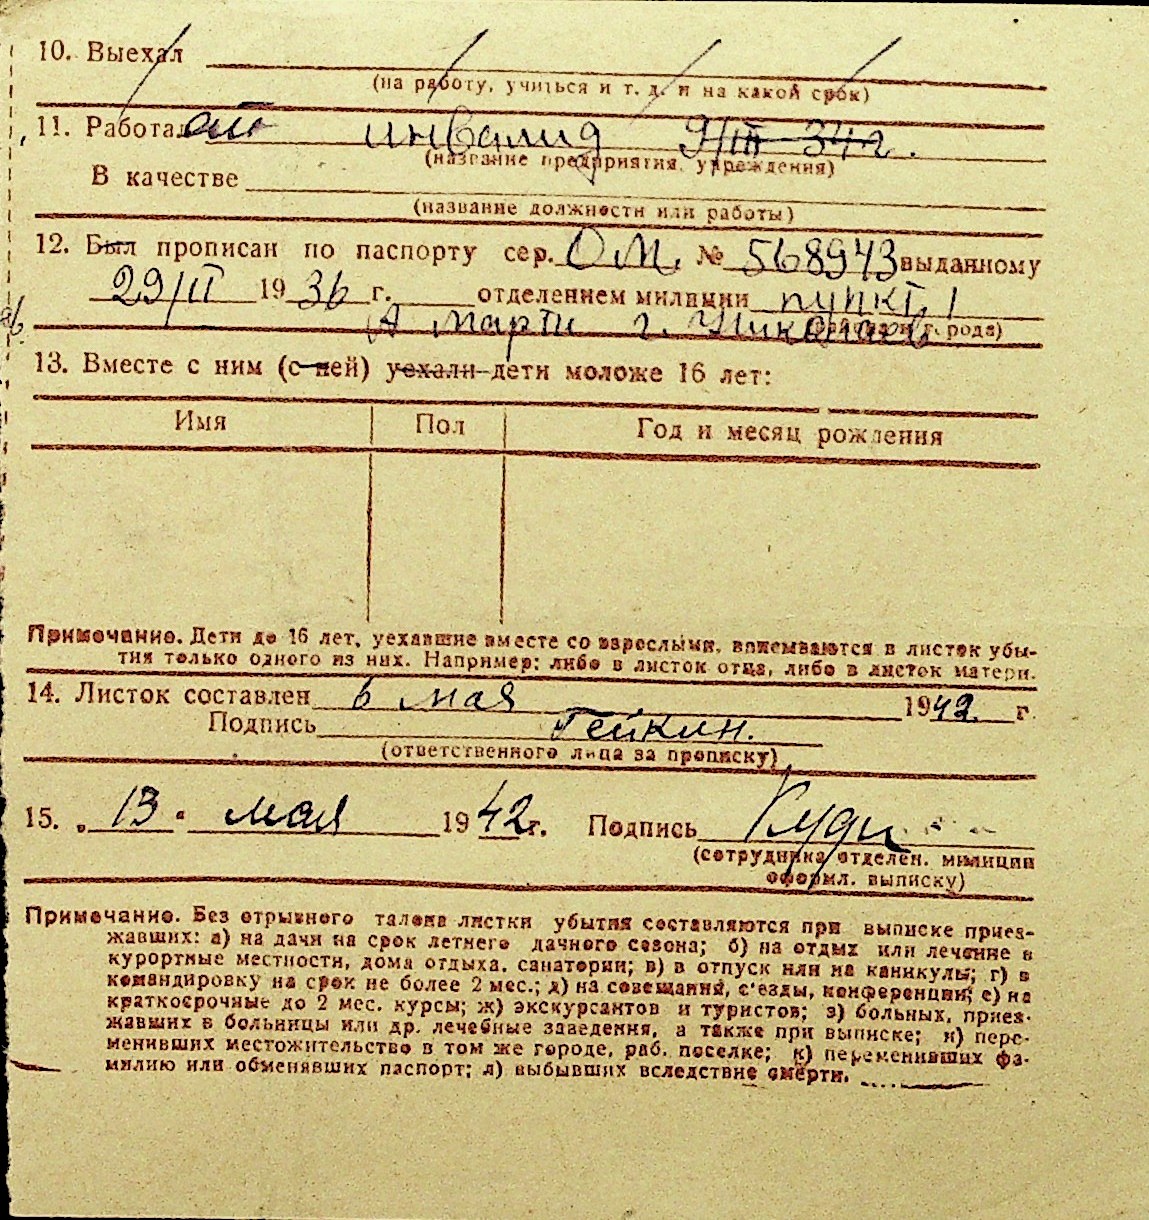 10. Выехал
(на работу, учиться и т. д. и на какой срок)
11. Работал инвалид 9/III 34 г.
(название предприятия, учреждения)
В качестве
(название должности или работы)
12. Был прописан по паспорту сер. О.М. № 568943 выданному
29/II 1936 г. отделением милиции пункт 1
А Марти г. Николаев
13. Вместе с ним (с ней) уехали дети моложе 16 лет:
Имя Пол Год и месяц рождения
Примечание. Дети до 16 лет, уехавшие вместе со взрослыми, вписываются в листок убы-
тия только одного из них. Например: либо в листок отца, либо в листок матери.
14. Листок составлен 6 мая 1942 г.
Подпись Гейкин.
(ответственного лица за прописку)
15. „13“ мая 1942 г. Подпись
(сотрудника отделен. милиции
оформл. выписку)
Примечание. Без отрывного талона листки убытия составляются при выписке приез-
жавших: а) на дачи на срок летнего дачного сезона; б) на отдых или лечение в
курортные местности, дома отдыха, санатории; в) в отпуск или на каникулы; г) в
командировку на срок не более 2 мес.; д) на совещания, с'езды, конференции; е) на
краткосрочные до 2 мес. курсы; ж) экскурсантов и туристов; з) больных, приез-
жавших в больницы или др. лечебные заведения, а также при выписке; и) пере-
менивших местожительство в том же городе, раб. поселке; к) переменивших фа-
милию или обменявших паспорт; л) выбывших вследствие смерти.